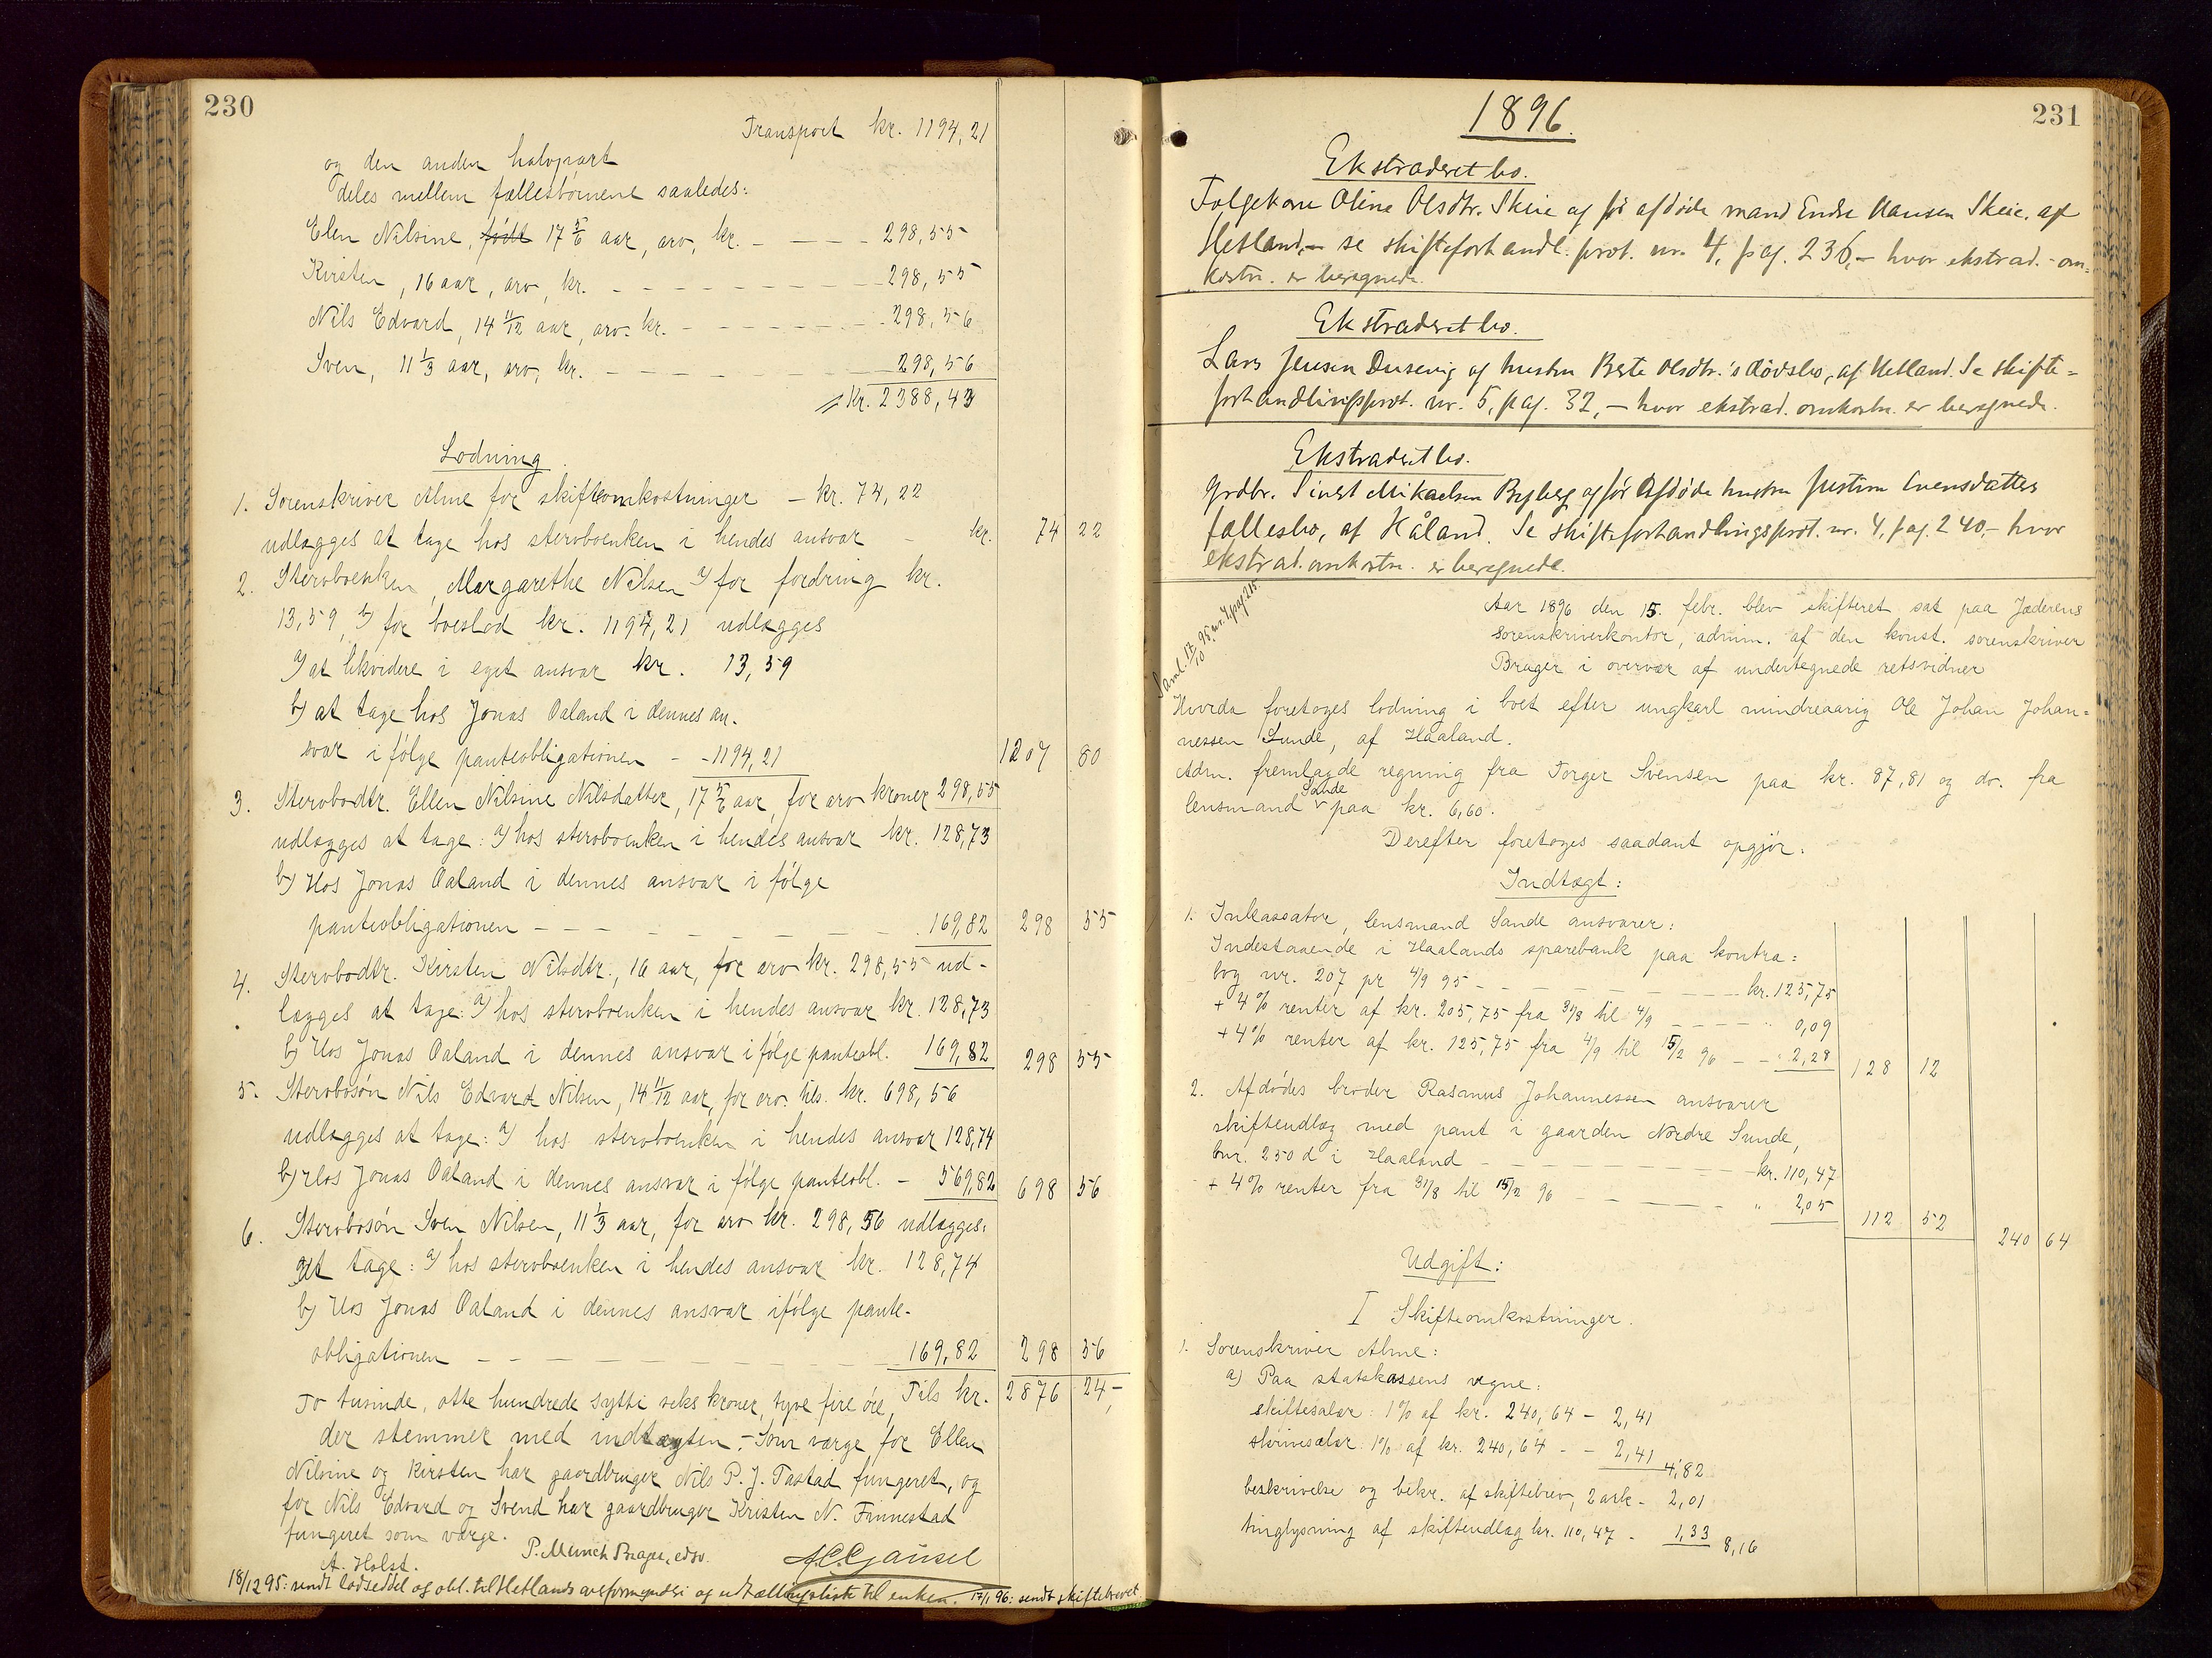 230
Transport kr. 1194,21
og den anden halvpart
deles mellem fællesbørnene saaledes:
Elen Nilsine, født 17 5/6 aar, arv, kr. - - - - 298,55
Kirsten, 16 aar, arv, kr. - - - - - - - - - 298,55
Nils Edvard, 14 11/12 aar, arv kr. - - - - - - - 298,56
Sven, 11 1/3 aar, arv, kr. - - - - - - - - - 298,56
Kr. 2388,43
Lodning.
1. Sorenskriver Alme for skifteomkostninger - kr. 74,22
udlægges at tage hos stervboenken i hendes ansvar - kr. 74 22
2. Stervboenken, Margarethe Nilsen a) for fordring kr.
13,59, b) for boeslod kr. 1194,21 udlægges
a) at likvidere i eget ansvar kr. 13,59
b) at tage hos Jonas Oaland i dennes an-
svar i følge panteobligationen - - 1194,21 1207 80
3. Stervbodtr. Ellen Nilsine Nilsdatter, 17 5/6 aar, for arv kroner 298,55
udlægges at tage: a) hos stervboenken i hendes ansvar kr. 128,73
b) Hos Jonas Oaland i dennes ansvar i følge
panteobligationen - - - - - - - - - 169,82 298 55
4. Stervbodtr. Kirsten Nilsdtr., 16 aar, for arv kr. 298,55 ud-
lægges at tage: a) hos stervboenken i hendes ansvar kr. 128,73
b) Hos Jonas Oaland i dennes ansvar ifølge panteobl. 169,82 298 55
5. Stervbosøn Nils Edvard Nilsen, 14 11/12 aar, for arv tils. kr. 698,56
udlægges at tage: a) hos stervboenken i hendes ansvar 128,74
b) Hos Jonas Oaland i dennes ansvar i følge panteobl. - 569,82 698 56
6. Stervbosøn Sven Nilsen, 11 1/3 aar, for arv kr. 298,56 udlægges:
at tage: a) hos stervboenken i hendes ansvar kr. 128,74
b) Hos Jonas Oaland i dennes ansvar ifølge pante-
obligationen - - - - - - - - - 169,82 298 56
To tusinde, otte hundrede sytti seks kroner, tyve fire øre, Tils kr. 2876 24,-
der stemmer med indtægten. - Som værge for Ellen
Nilsine og Kirsten har gaardbruger Nils P. J. Tastad fungeret, og
for Nils Edvard og Svend har gaardbruger Kristen N. Finnestad
fungeret som værge.
A. Holst. P. Munch Brager, edsv. A.C. Gausel
18/12 95: sendt lodseddel og obl. til Hetlands overformynderi og udtællingsliste til enken. 17/1 96: sendt skiftebrevet
231
1896.
Ekstraderet bo.
Folgekone Oline Olsdtr. Skeie og før afdøde mand Endre Hansen Skeie, af
Hetland, - se skifteforhandl. prot. nr. 4, pag. 236, - hvor ekstrad.-om-
kostn. er beregnede.
Ekstraderet bo.
Lars Jensen Dusevig og hustru Berte Olsdtr.'s dødsbo, af Hetland. Se skifte-
forhandlingsprot. nr. 5, pag. 32, - hvor ekstrad. omkostn. er beregnede.
Ekstraderet bo.
Grdbr. Sivert Mikaelsen Byberg og før Afdøde hustru Justine Evensdatters
fællesbo, af Håland. Se skifteforhandlingsprot. nr. 4, pag. 240, - hvor
ekstrad. omkostn. er beregnede.
Saml. 17/10 95, nr. 4 pag 215.
Aar 1896 den 15. febr. blev skifteret sat paa Jæderens
sorenskriverkontor, admin. af den konst. sorenskriver
Brager i overvær af undertegnede retsvidner
Hvorda foretoges lodning i boet efter ungkarl mindreaarig Ole Johan Johan-
nessen Sunde, af Haaland.
Adm. fremlagde regning fra Torger Svensen paa kr. 87,81 og do. fra
lensmand Sande paa kr. 6,60.
Derefter foretoges saadant opgjør.
Indtægt:
1. Inkassator, lensmand Sande ansvarer:
Indestaaende i Haalands sparebank paa kontra-
bog nr. 207 pr 4/9 95 - - - - - - - - kr. 125,75
+ 4% renter af kr. 205,75 fra 31/8 til 4/9 - - - - " 0,09
+ 4% renter af kr. 125,75 fra 4/9 til 15/2 96 - - " 2,28 128 12
2. Afdødes broder Rasmus Johannessen ansvarer
skifteudlæg med pant i gaarden Nordre Sunde,
bnr. 250 d i Haaland - - - - - - - - kr. 110,47
+ 4% renter fra 31/8 til 15/2 96 - - - - - - " 2,05 112 52 240 64
Udgift:
I Skifteomkostninger.
1. Sorenskriver Alme:
a) Paa statskassens vegne:
skiftesalær: 1% af kr. 240,64 - 2,41
skrivesalær 1% af kr. 240,64 - - 2,41 4,82
beskrivelse og bekr. af skiftebrev, 2 ark - 2,01
tinglysning af skifteudlæg kr. 110,47 - 1,33 8,16